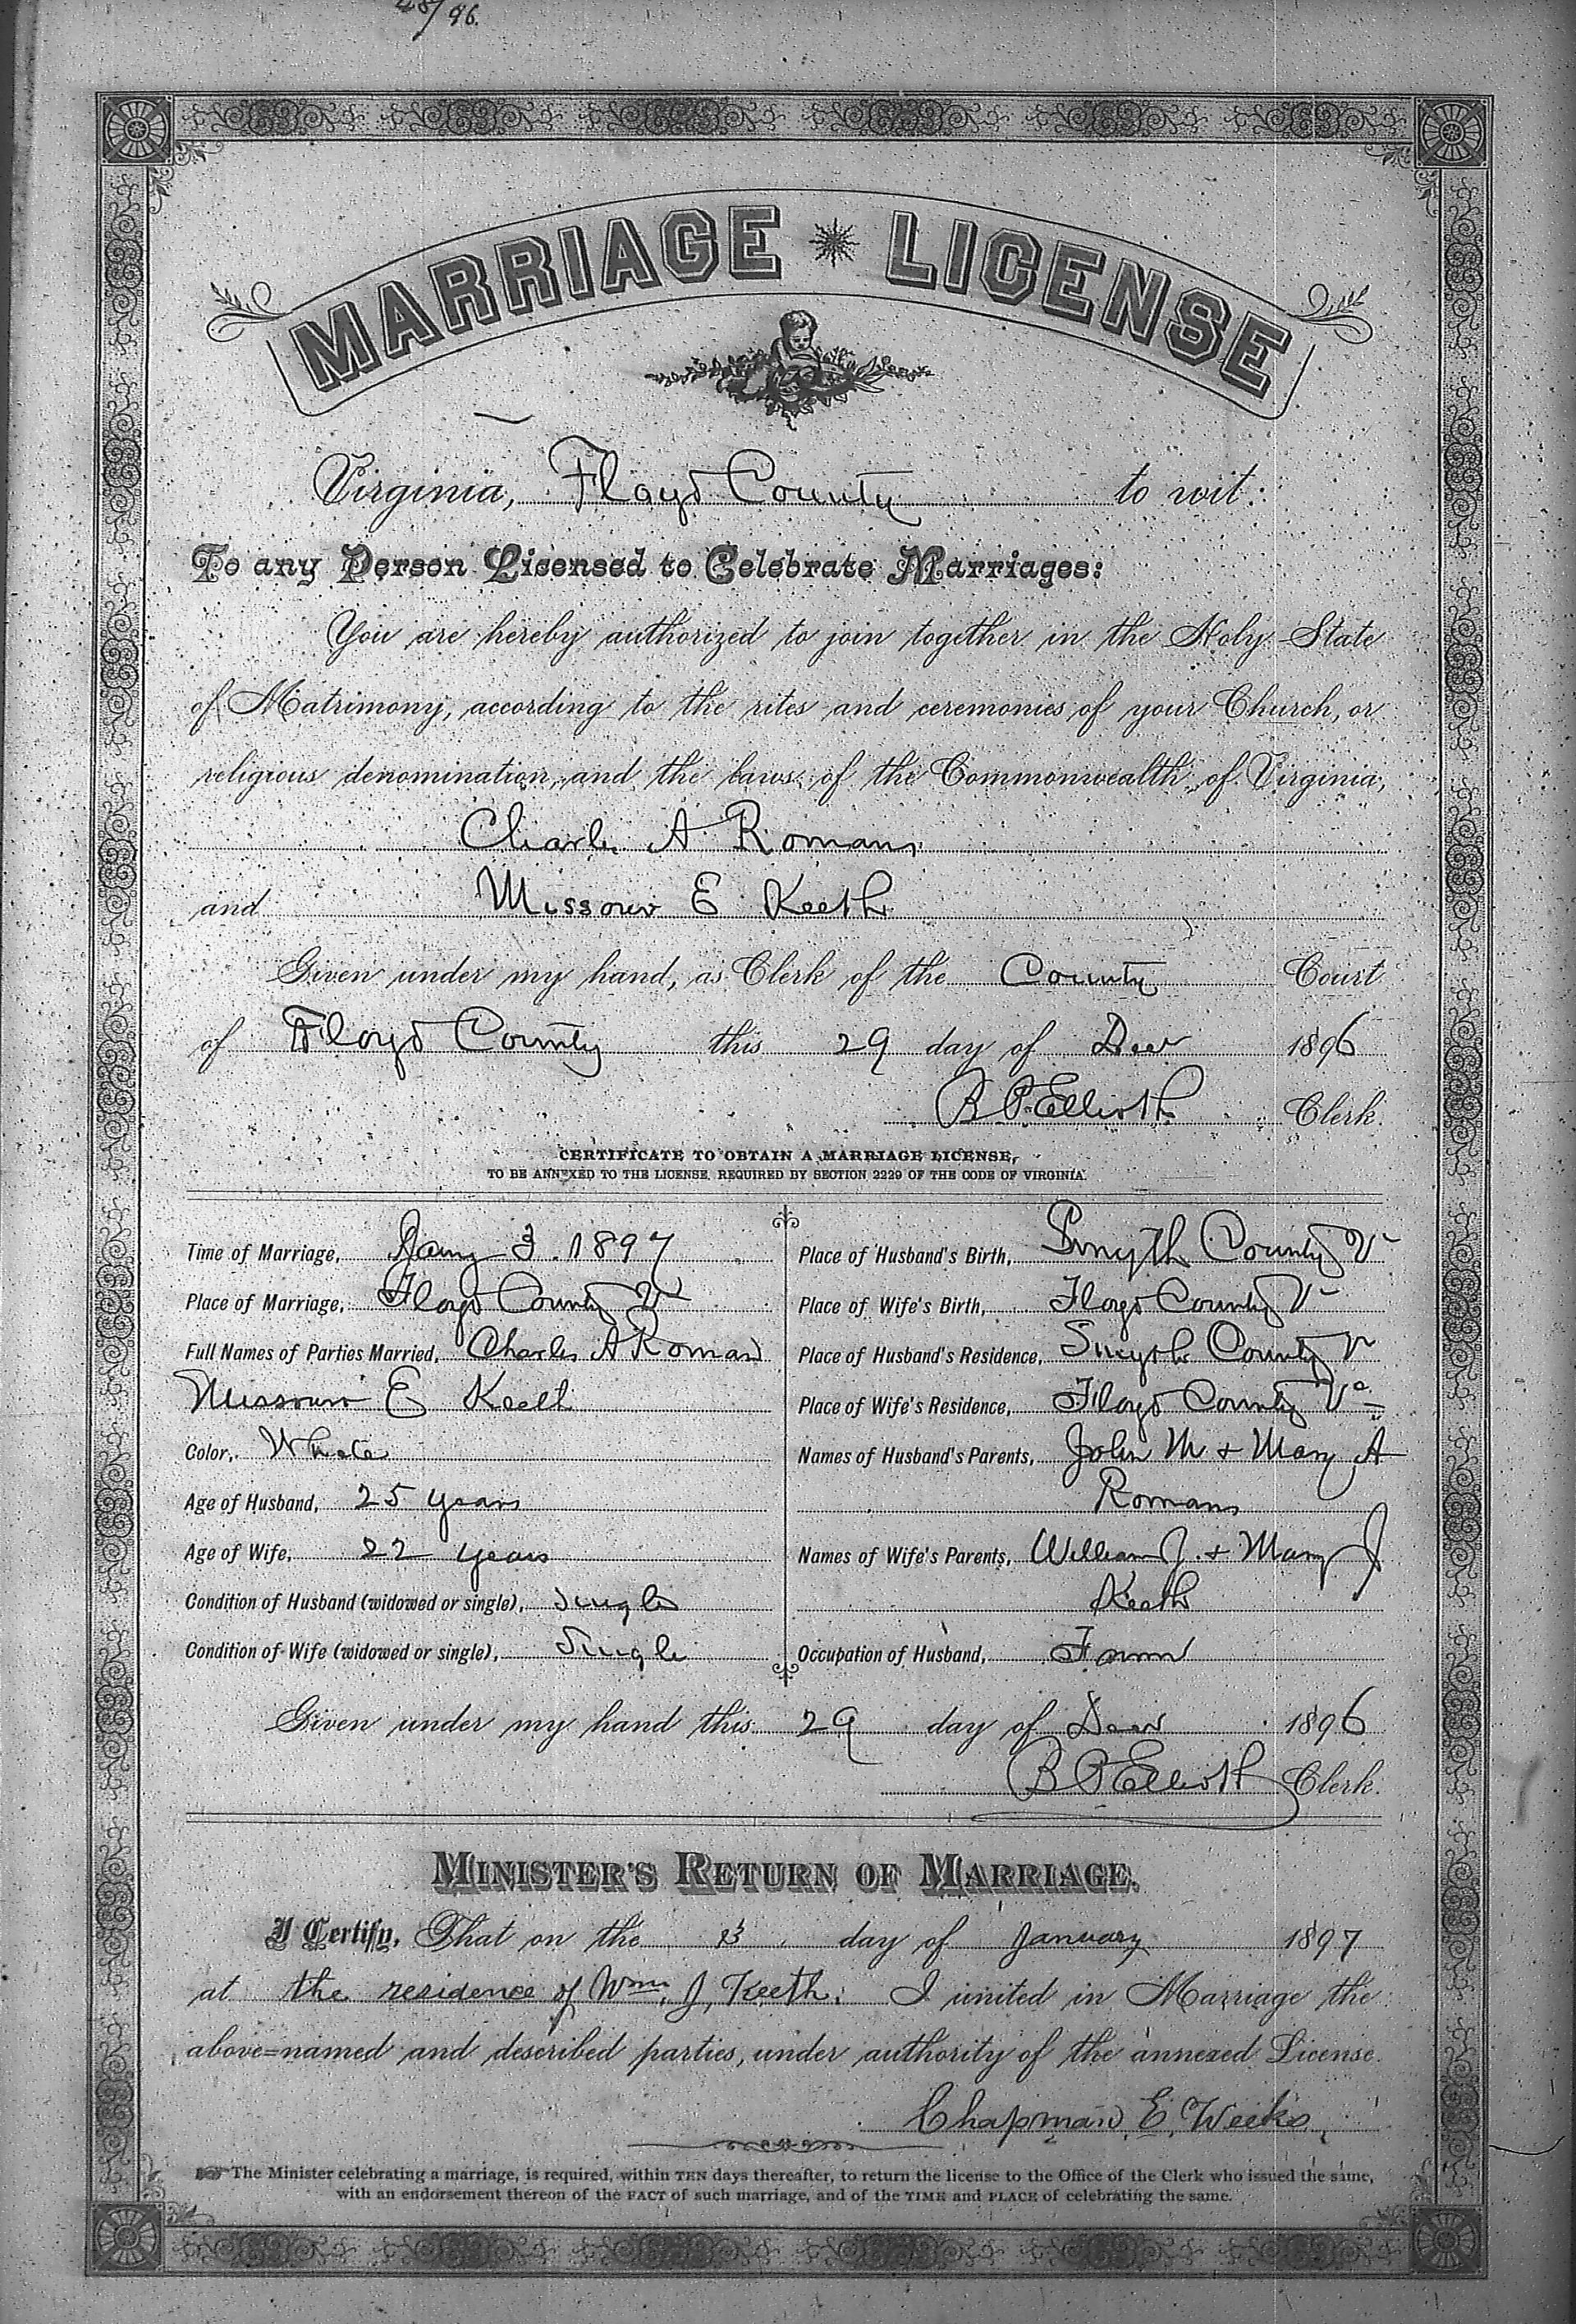 /96.
MARRIAGE LICENSE
Virginia, Floyd County to wit:
To any Person Licensed to Celebrate Marriages:
You are hereby authorized to join together in the Holy State
of Matrimony, according to the rites and ceremonies of your Church, or
religious denomination, and the laws of the Commonwealth of Virginia,
Charles A Romans
and Missouri E Keeth
Given under my hand, as Clerk of the County Court
of Floyd County this 29 day of Decr 1896
B P Elliott Clerk.
CERTIFICATE TO OBTAIN A MARRIAGE LICENSE,
TO BE ANNEXED TO THE LICENSE, REQUIRED BY SECTION 2229 OF THE CODE OF VIRGINIA.
Time of Marriage, Jany 3 1897
Place of Marriage, Floyd County Va
Full Names of Parties Married, Charles A Romans
Missouri E Keeth
Color, White
Age of Husband, 25 years
Age of Wife, 22 years
Condition of Husband (widowed or single), Single
Condition of Wife (widowed or single), Single
Place of Husband's Birth, Smyth County Va
Place of Wife's Birth, Floyd County Va
Place of Husband's Residence, Smyth County Va
Place of Wife's Residence, Floyd County Va
Names of Husband's Parents, John M + Mary A
Romans
Names of Wife's Parents, William J. + Mary J
Keeth
Occupation of Husband, Farmer
Given under my hand this 29 day of Decr 1896
B P Elliott Clerk.
MINISTER'S RETURN OF MARRIAGE.
I Certify, That on the 3 day of January 1897
at the residence of Wm. J. Keeth. I united in Marriage the
above-named and described parties, under authority of the annexed License.
Chapman E. Weeks.
☞ The Minister celebrating a marriage, is required, within TEN days thereafter, to return the license to the Office of the Clerk who issued the same,
with an endorsement thereon of the FACT of such marriage, and of the TIME and PLACE of celebrating the same.